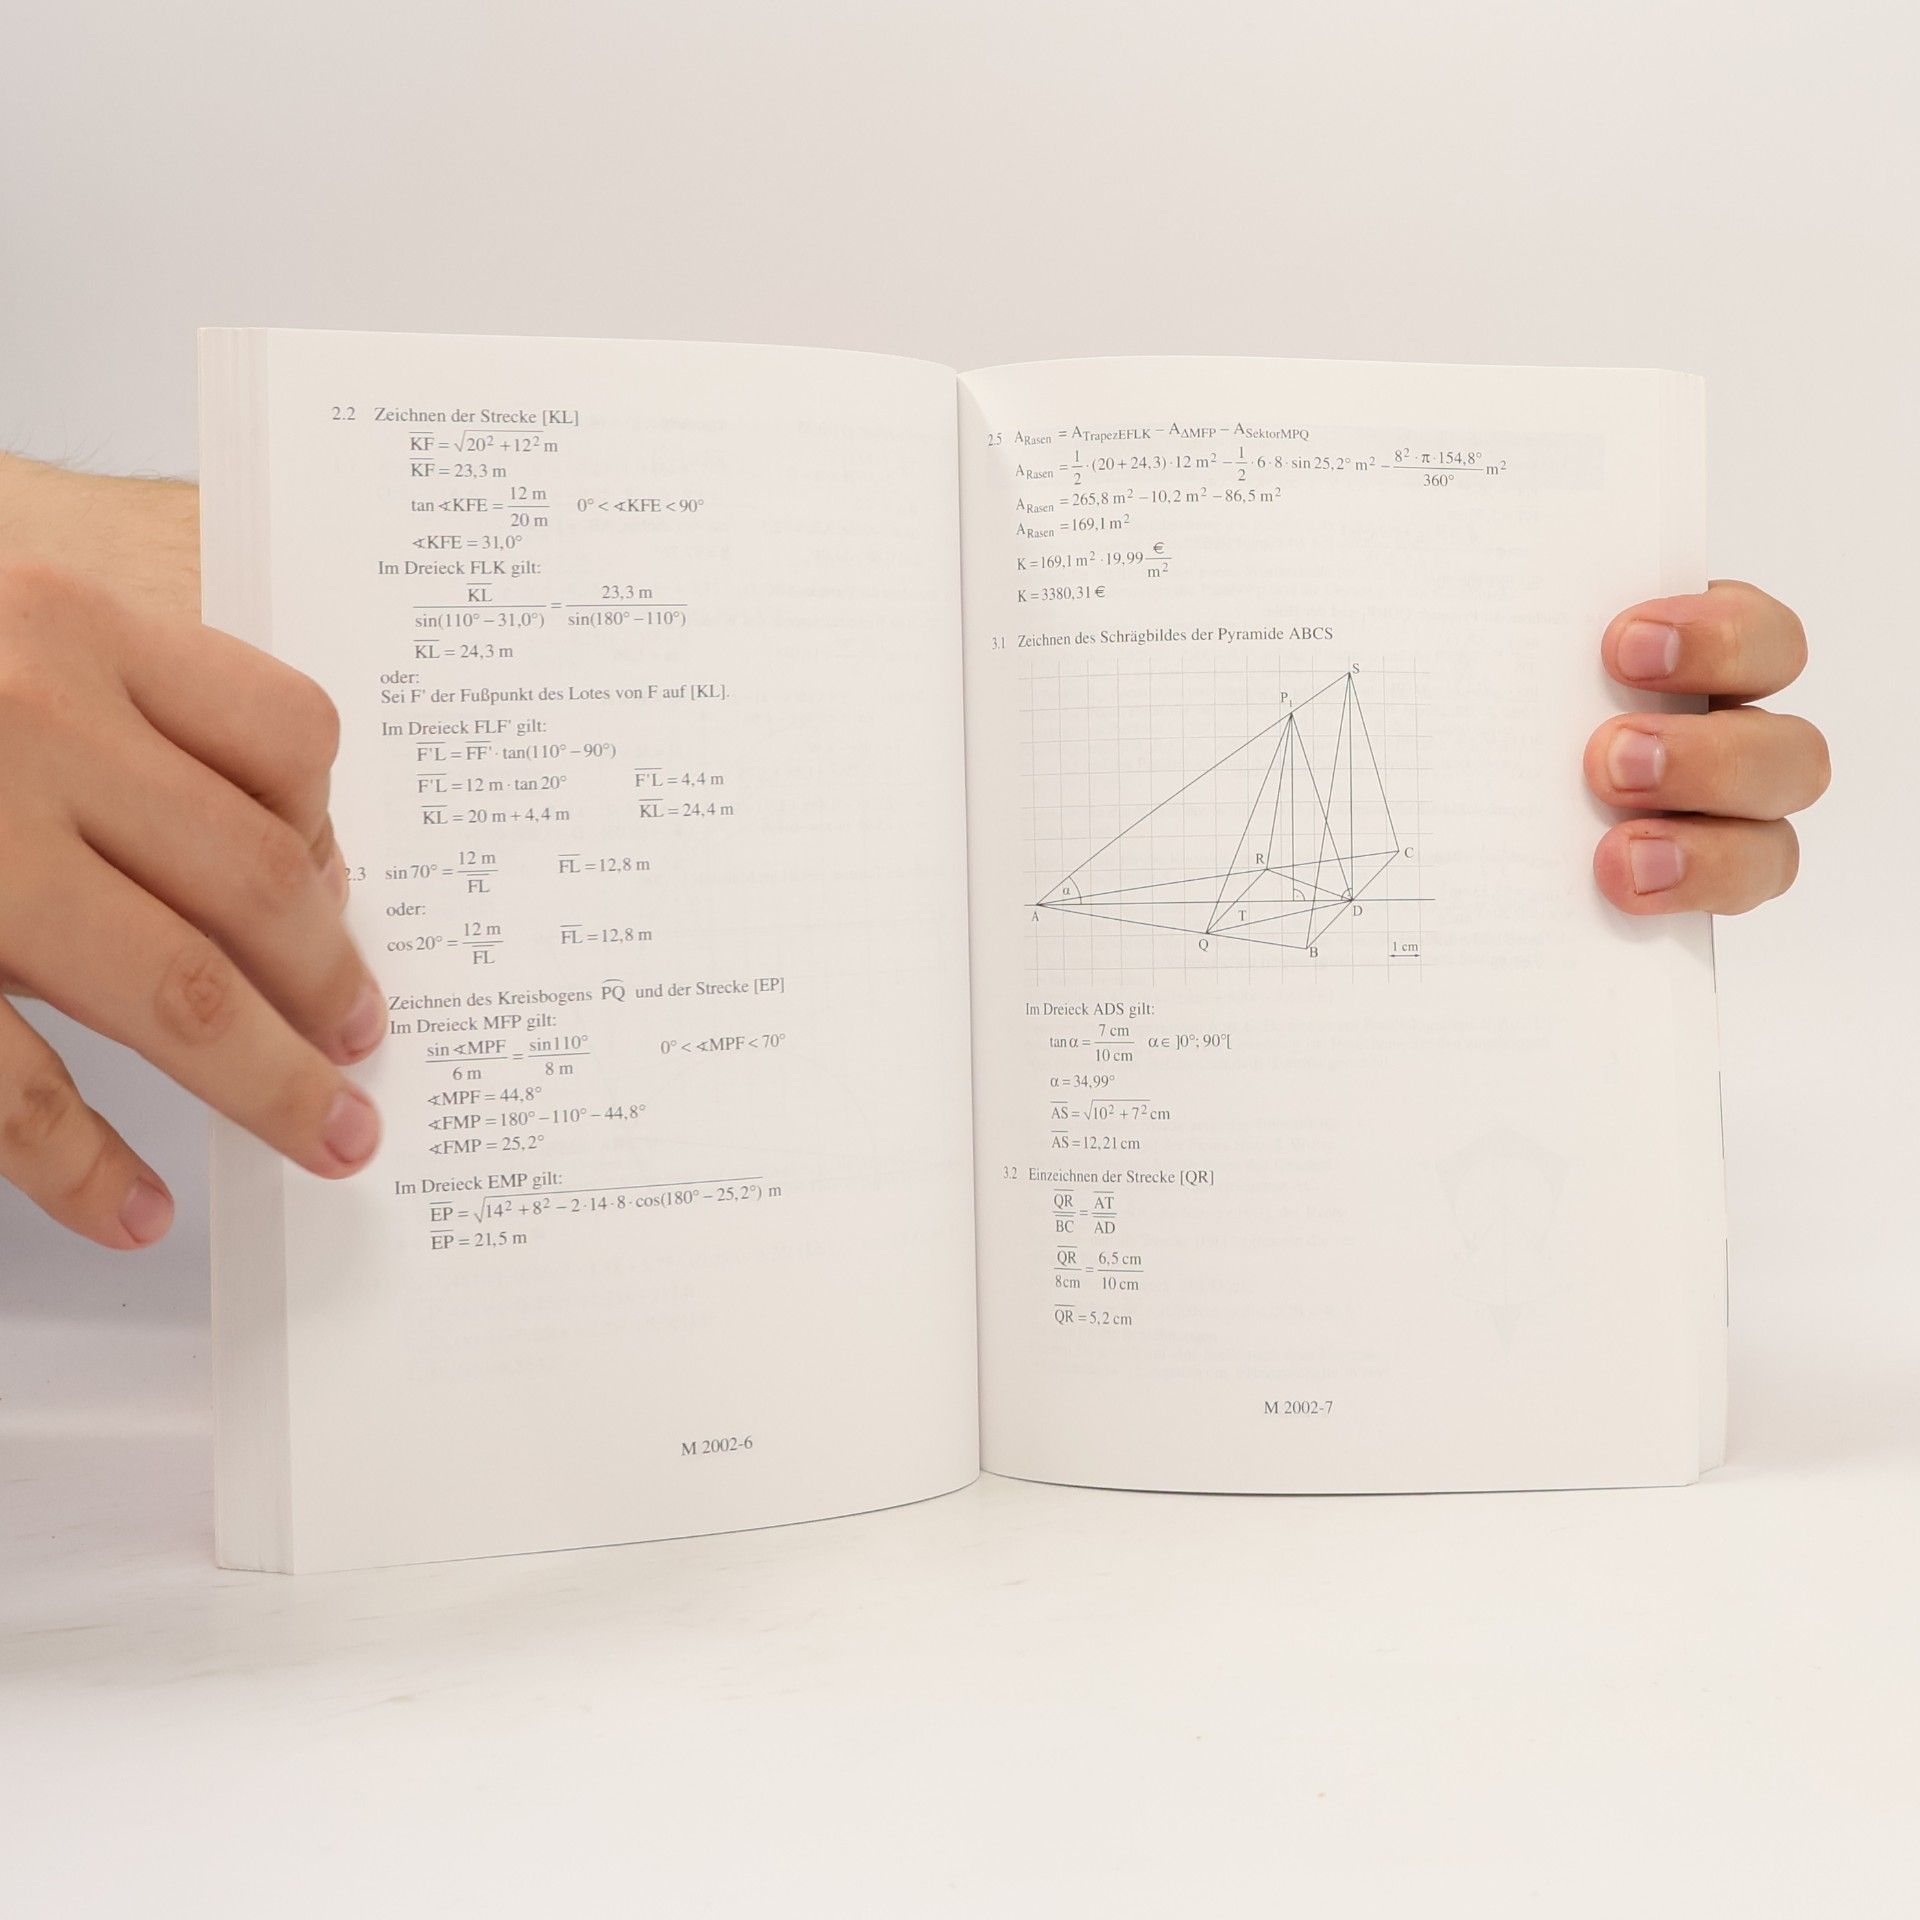 2.2 Zeichnen der Strecke [KL]
KF = √20² + 12² m
KF = 23,3 m
tan ∢KFE = 12 m / 20 m 0° < ∢KFE < 90°
∢KFE = 31,0°
Im Dreieck FLK gilt:
KL / sin(110° − 31,0°) = 23,3 m / sin(180° − 110°)
KL = 24,3 m
oder:
Sei F' der Fußpunkt des Lotes von F auf [KL].
Im Dreieck FLF' gilt:
F'L = FF' · tan(110° − 90°)
F'L = 12 m · tan 20° F'L = 4,4 m
KL = 20 m + 4,4 m KL = 24,4 m
2.3 sin 70° = 12 m / FL FL = 12,8 m
oder:
cos 20° = 12 m / FL FL = 12,8 m
Zeichnen des Kreisbogens PQ und der Strecke [EP]
Im Dreieck MFP gilt:
sin ∢MPF / 6 m = sin 110° / 8 m 0° < ∢MPF < 70°
∢MPF = 44,8°
∢FMP = 180° − 110° − 44,8°
∢FMP = 25,2°
Im Dreieck EMP gilt:
EP = √14² + 8² − 2 · 14 · 8 · cos(180° − 25,2°) m
EP = 21,5 m
M 2002-6
2.5 A Rasen = A TrapezEFLK − A ΔMFP − A SektorMPQ
A Rasen = 1/2 · (20 + 24,3) · 12 m² − 1/2 · 6 · 8 · sin 25,2° m² − 8² · π · 154,8° / 360° m²
A Rasen = 265,8 m² − 10,2 m² − 86,5 m²
A Rasen = 169,1 m²
K = 169,1 m² · 19,99 € / m²
K = 3380,31 €
3.1 Zeichnen des Schrägbildes der Pyramide ABCS
S
P₁
R
C
α
A
T
D
Q
B
1 cm
Im Dreieck ADS gilt:
tan α = 7 cm / 10 cm α ∈ ]0°; 90°[
α = 34,99°
AS = √10² + 7² cm
AS = 12,21 cm
3.2 Einzeichnen der Strecke [QR]
QR / BC = AT / AD
QR / 8cm = 6,5 cm / 10 cm
QR = 5,2 cm
M 2002-7